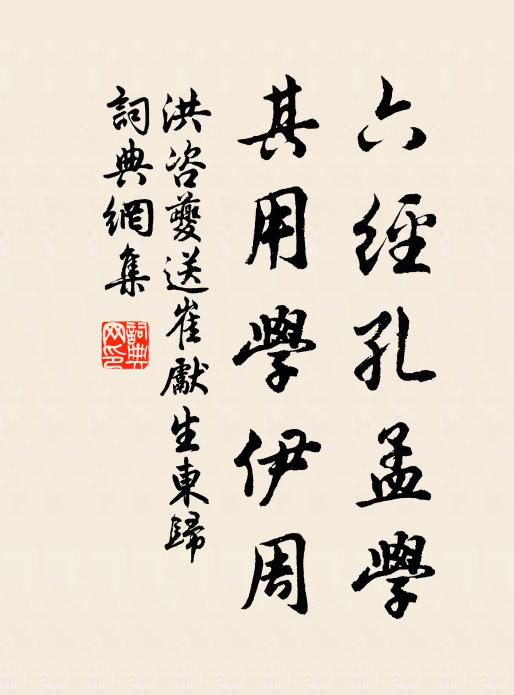 六經孔孟學
其用學伊周
洪咨夔送崔獻生東歸
詞典網集
詞典網印